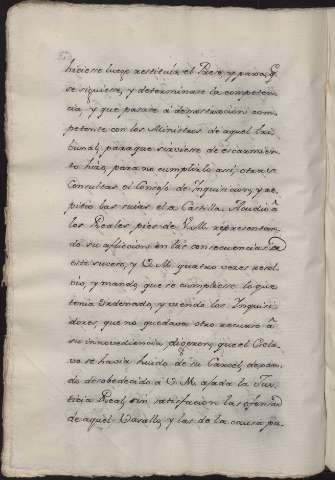 hiciese luego restituir el Preso, y para q.
se siguiese, y determinase la competen-
cia, y que pasase á demostracion com-
petente con los Ministros de aquel tri-
bunal, para que sirviese de escarmien-
to hizo, para no cumplirlo assi otras
Consultas el Consejo de Inquisicion, y re-
pitio las suias el de Castilla. Acudio á
los Reales pies de V.M. representan-
do su afliccion en las consecuencias de
este suceso, y V.M. quatro veces resol-
vió, y mandó, que se cumpliese lo que
tenia Ordenado, y viendo los Inquisi-
dores, que no quedava otro recurso á
su innovediencia dixeron, que el Escla-
vo se havia huido de la Carcel, dejan-
do desobedecido á V.M. ajada la Jus-
ticia Real, sin satisfacion las ofensas
de aquel Vasallo, y las de la causa pu-